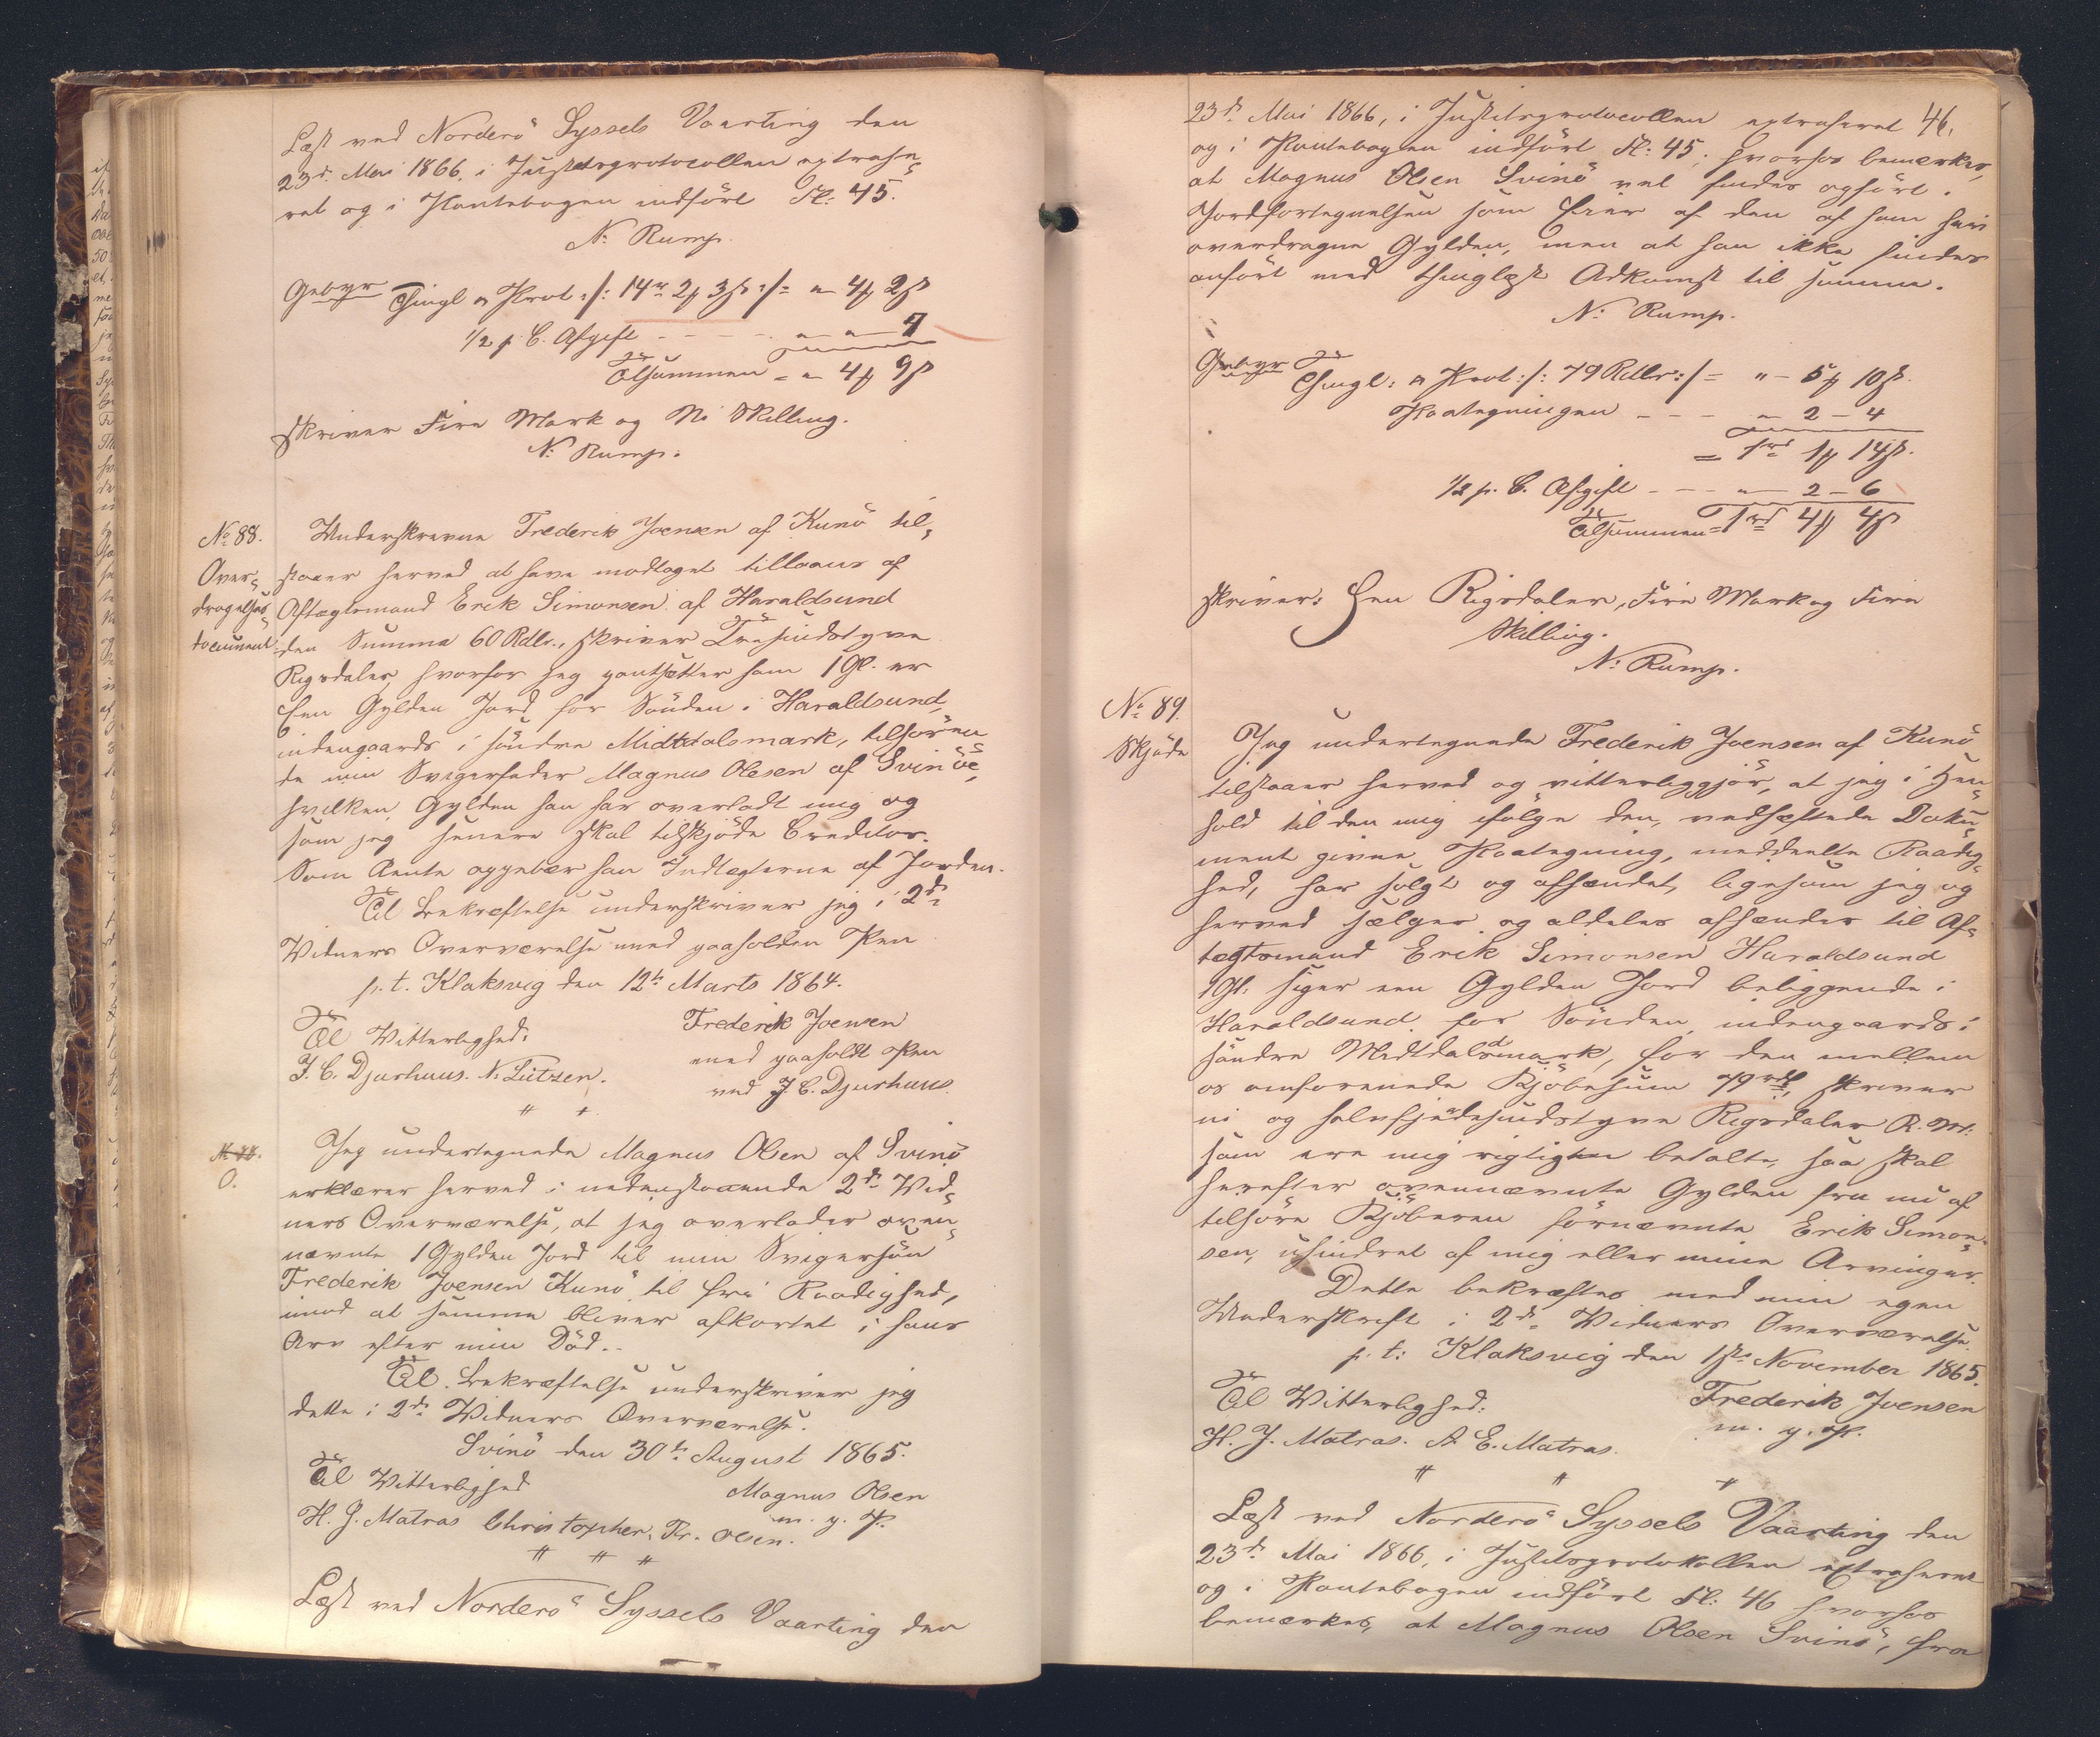 Læst ved Norderö Syssels Vaarting den
23de Mai 1866, i Justitsprotocollen extrahe=
ret og i Pantebogen indført Fl: 45.
N: Rump.
Gebyr Thingl & Prot :/: 14 rd 2 ₰ 3 ß :/: = " 4 ₰ 2 ß
1/2 p. C. Afgift - - - - " " 7
Tilsammen = " 4 ₰ 9 ß
skriver Fire Mark og Ni Skilling.
N: Rump.
No 88.
Over=
dragelses=
document
Underskrevne Frederik Joensen af Kunö til=
staaer herved at have modtaget tillaans af
Aftægtsmand Erik Simonsen af Haraldsund
den Summa 60 Rdlr., skriver Tresindstyve
Rigsdaler, hvorfor jeg pantsætter ham 1 Gl. er
Een Gylden Jord for Sönden i Haraldsund,
indengaards i söndre Midtdalsmark, tilhören
de min Svigerfader Magnus Olesen af Svinöe,
hvilken Gylden han har overladt mig og
som jeg senere skal tilskjöde Creditor.
Som Rente oppebær han Indtægterne af Jorden.
Til Bekræftelse underskriver jeg i 2de
Vidners Overværelse med paaholden Pen
p. t. Klaksvig den 12te Marts 1864.
Til Vitterlighed: Frederik Joensen
J. C. Djurhuus. N. Lützen. med paaholdt Pen
ved J. C. Djurhuus.
" +
N: 88.
O.
Jeg undertegnede Magnus Olsen af Svinö
erklærer herved i nedenstaaende 2de Vid=
ners Overværelse, at jeg overlader oven=
nævnte 1 Gylden Jord til min Svigersön
Frederik Joensen Kunö til fri Raadighed,
imod at samme bliver afkortet i hans
Arv efter min Död.
Til Bekræftelse underskriver jeg
dette i 2de Vidners Overværelse.
Svinö den 30te August 1865.
Til Vitterlighed Magnus Olsen
H. J. Matras Christopher. Fr. Olsen. m. p. P.
" " "
Læst ved Norderö Syssels Vaarting den
46.
23de Mai 1866, i Justitsprotocollen extraheret
og i Pantebogen indfört Fl: 45, hvorhos bemærkes,
at Magnus Olsen Svinö vel findes opfört i
Jordfortegnelsen som Eier af den af ham her
overdragne Gylden, men at han ikke findes
anfört med thinglæst Adkomst til samme.
N: Rump.
Gebyr Thingl: & Prot :/: 79 Rdlr :/ = " - 5 ₰ 10 ß.
Paategningen - - - " 2 - 4
= 1 rd 1 ₰ 14 ß.
1/2 p. C. Afgift - - - " 2 - 6
Tilsammen = 1 rd 4 ₰ 4 ß
skriver: Een Rigsdaler, Fire Mark og Fire
Skilling.
N: Rump.
No 89.
Skjöde
Jeg undertegnede Frederik Joensen af Kunö
tilstaaer herved og vitterliggjör, at jeg i Hen=
hold til den mig ifölge den, vedhæftede Doku=
ment givne Paategning, meddeelte Raadig=
hed, har solgt og afhændet, ligesom jeg og
herved sælger og aldeles afhænder til Af=
tægtsmand Erik Simonsen Haraldsund
1 Gl. siger een Gylden Jord beliggende i
Haraldsund for Sönden, indengaards i
söndre Midtdalsmark, for den mellem
os omforenede Kjöbesum 79 rdl, skriver
ni og halvfjerdesindstyve Rigsdaler R. M.
som ere mig rigtigen betalte, saa skal
herefter ovennævnte Gylden fra nu af
tilhöre Kjöberen förnævnte Erik Simon=
sen, uhindret af mig eller mine Arvinger.
Dette bekræftes med min egen
Underskrift i 2de Vidners Overværelse.
p. t: Klaksvig den 1ste November 1865.
Til Vitterlighed: Frederik Joensen
H. J. Matras. A. E. Matras. m. p. P.
" " +
Læst ved Norderö Syssels Vaarting den
23de Mai 1866, i Justitsprotokollen extraheret
og i Pantebogen indfört Fl: 46 hvorhos
bemærkes, at Magnus Olsen Svinö, fra